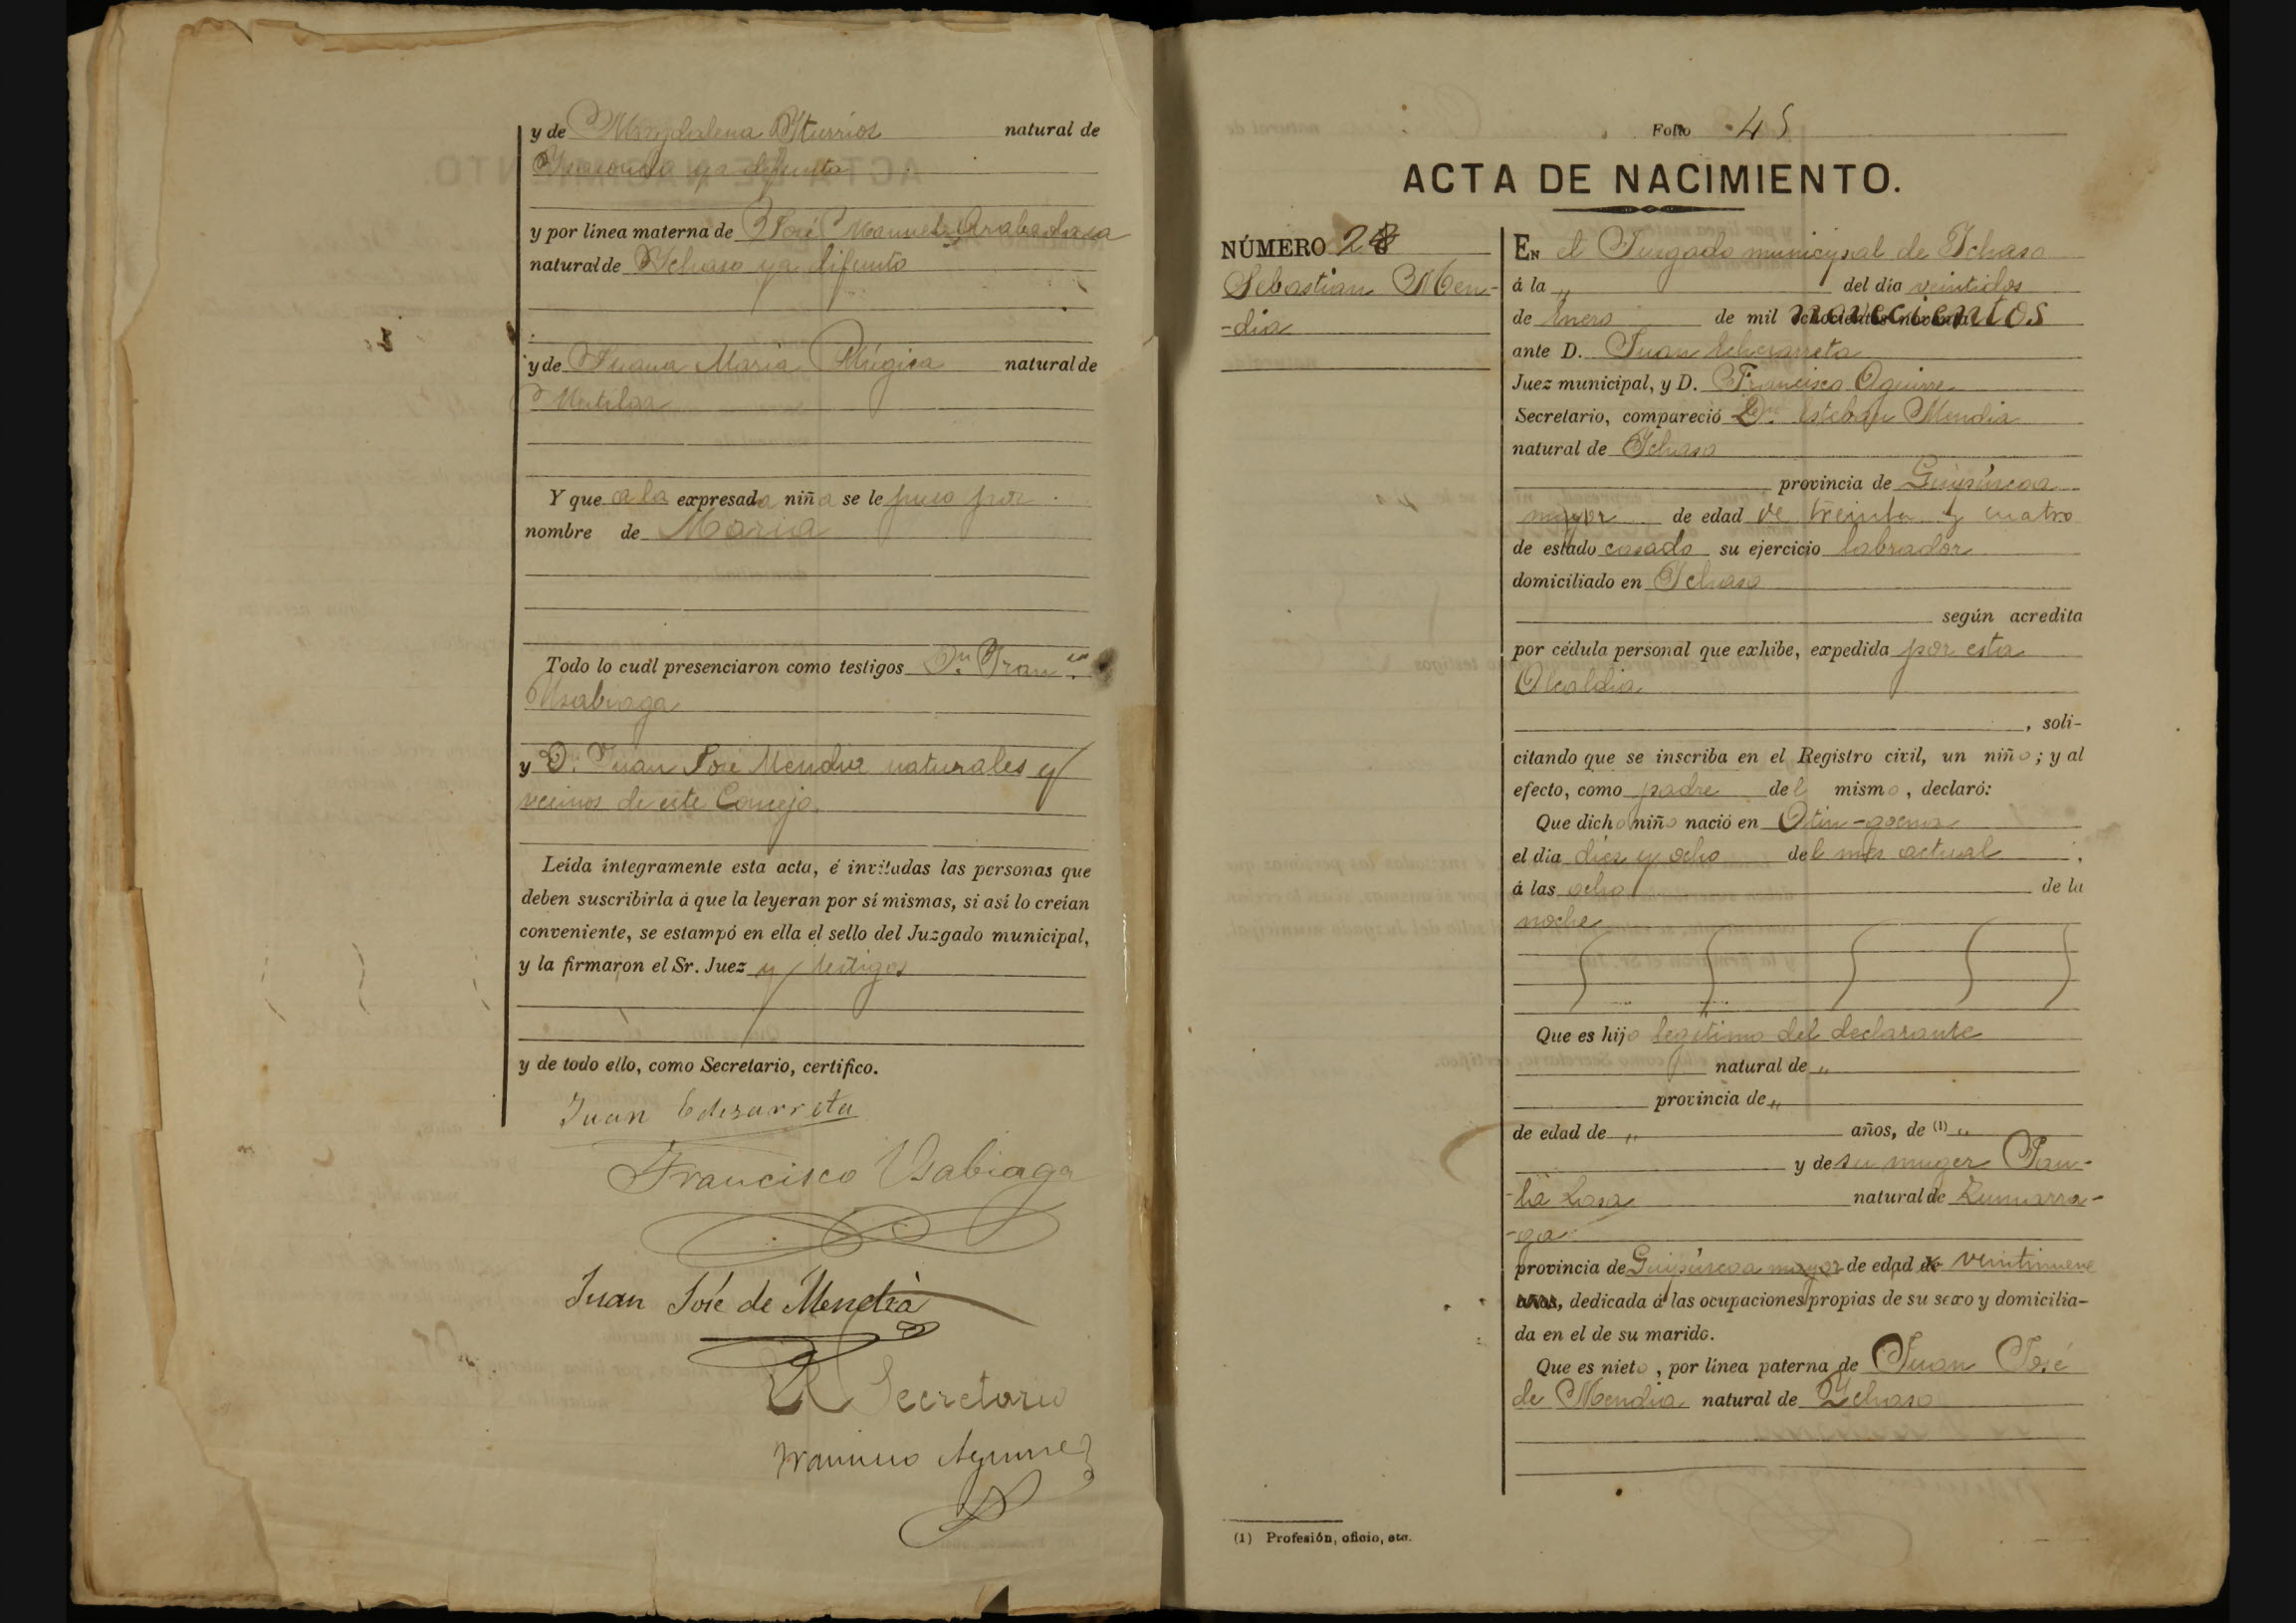 y de Magdalena Yturrioz natural de
Ysasondo ya difunta
y por línea materna de José Manuel Arabaolaza
natural de Ychaso ya difunto
y de Juana María Múgica natural de
Mutiloa
Y que a la expresada niña se le puso por
nombre de María
Todo lo cuál presenciaron como testigos Dn. Franco.
Usabiaga
y D. Juan José Mendia naturales y
vecinos de este Concejo.
Leída íntegramente esta acta, é invitadas las personas que
deben suscribirla á que la leyeran por sí mismas, si así lo creían
conveniente, se estampó en ella el sello del Juzgado municipal,
y la firmaron el Sr. Juez y testigos
y de todo ello, como Secretario, certifico.
Juan Echezarreta
Francisco Usabiaga
Juan José de Mendia
El Secretario
Francisco Aguirre
Folio 45
ACTA DE NACIMIENTO.
NÚMERO 28
Sebastian Men-
-dia
EN el Juzgado municipal de Ichaso
á la „ del día veintidos
de Enero de mil novecientos
ante D. Juan Echezarreta
Juez municipal, y D. Francisco Aguirre
Secretario, compareció Dn. Esteban Mendia
natural de Ichaso
provincia de Guipúzcoa
mayor de edad de treinta y cuatro
de estado casado su ejercicio labrador
domiciliado en Ichaso
según acredita
por cédula personal que exhibe, expedida por esta
Alcaldia
, soli-
citando que se inscriba en el Registro civil, un niño; y al
efecto, como padre del mismo, declaró:
Que dicho niño nació en Otin-goena
el día diez y ocho del mes actual
á las ocho de la
noche
Que es hijo legítimo del declarante
natural de „
provincia de „
de edad de „ años, de (1) „
y de su muger Pau-
-la Lasa natural de Zumarra-
-ga
provincia de Guipúzcoa mayor de edad de veintinueve
años, dedicada á las ocupaciones propias de su sexo y domicilia-
da en el de su marido.
Que es nieto, por línea paterna de Juan José
de Mendia natural de Ychaso
(1) Profesión, oficio, etc.